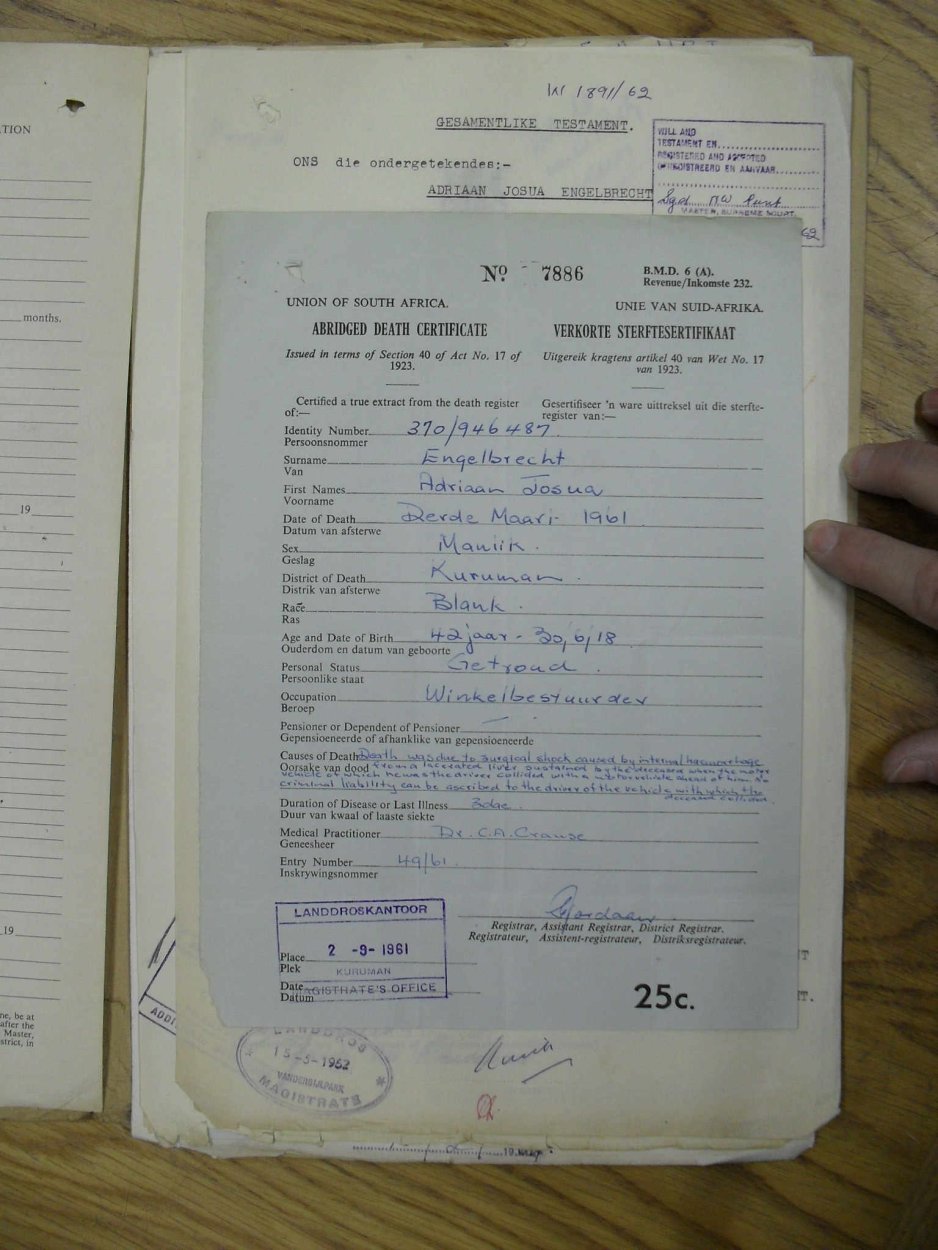 TION
months.
19
19
ne, be at
after the
Master,
strict, in
1891/62
GESAMENTLIKE TESTAMENT.
WILL AND
TESTAMENT EN
REGISTERED AND ACCEPTED
GEREGISTREERD EN AANVAAR
MASTER, SUPREME COURT.
62
ONS die ondergetekendes:-
ADRIAAN JOSUA ENGELBRECHT
No 7886
B.M.D. 6 (A).
Revenue/Inkomste 232.
UNION OF SOUTH AFRICA.
UNIE VAN SUID-AFRIKA.
ABRIDGED DEATH CERTIFICATE
VERKORTE STERFTESERTIFIKAAT
Issued in terms of Section 40 of Act No. 17 of
1923.
Uitgereik kragtens artikel 40 van Wet No. 17
van 1923.
Certified a true extract from the death register
of:—
Gesertifiseer 'n ware uittreksel uit die sterfte-
register van:—
Identity Number 370/946487
Persoonsnommer
Surname Engelbrecht
Van
First Names Adriaan Josua
Voorname
Date of Death Derde Maart 1961
Datum van afsterwe
Sex Manlik.
Geslag
District of Death Kuruman.
Distrik van afsterwe
Race Blank.
Ras
Age and Date of Birth 42 jaar - 30/6/18
Ouderdom en datum van geboorte
Personal Status Getroud.
Persoonlike staat
Occupation Winkelbestuurder
Beroep
Pensioner or Dependent of Pensioner —
Gepensioeneerde of afhanklike van gepensioeneerde
Causes of Death Death was due to surgical shock caused by internal haemorrhage
Oorsake van dood from a lacerated liver sustained by the deceased when the motor
vehicle of which he was the driver collided with a motor vehicle ahead of him. No
criminal liability can be ascribed to the driver of the vehicle with which the
deceased collided.
Duration of Disease or Last Illness 3 dae.
Duur van kwaal of laaste siekte
Medical Practitioner Dr. C.A. Crause
Geneesheer
Entry Number 49/61.
Inskrywingsnommer
Registrar, Assistant Registrar, District Registrar.
Registrateur, Assistent-registrateur, Distriksregistrateur.
LANDDROSKANTOOR
Place 2 -9-1961
Plek KURUMAN
Date MAGISTRATE'S OFFICE
Datum
25c.
LANDDROS
15-5-1962
VANDERBIJLPARK
MAGISTRATE
ADDI
19